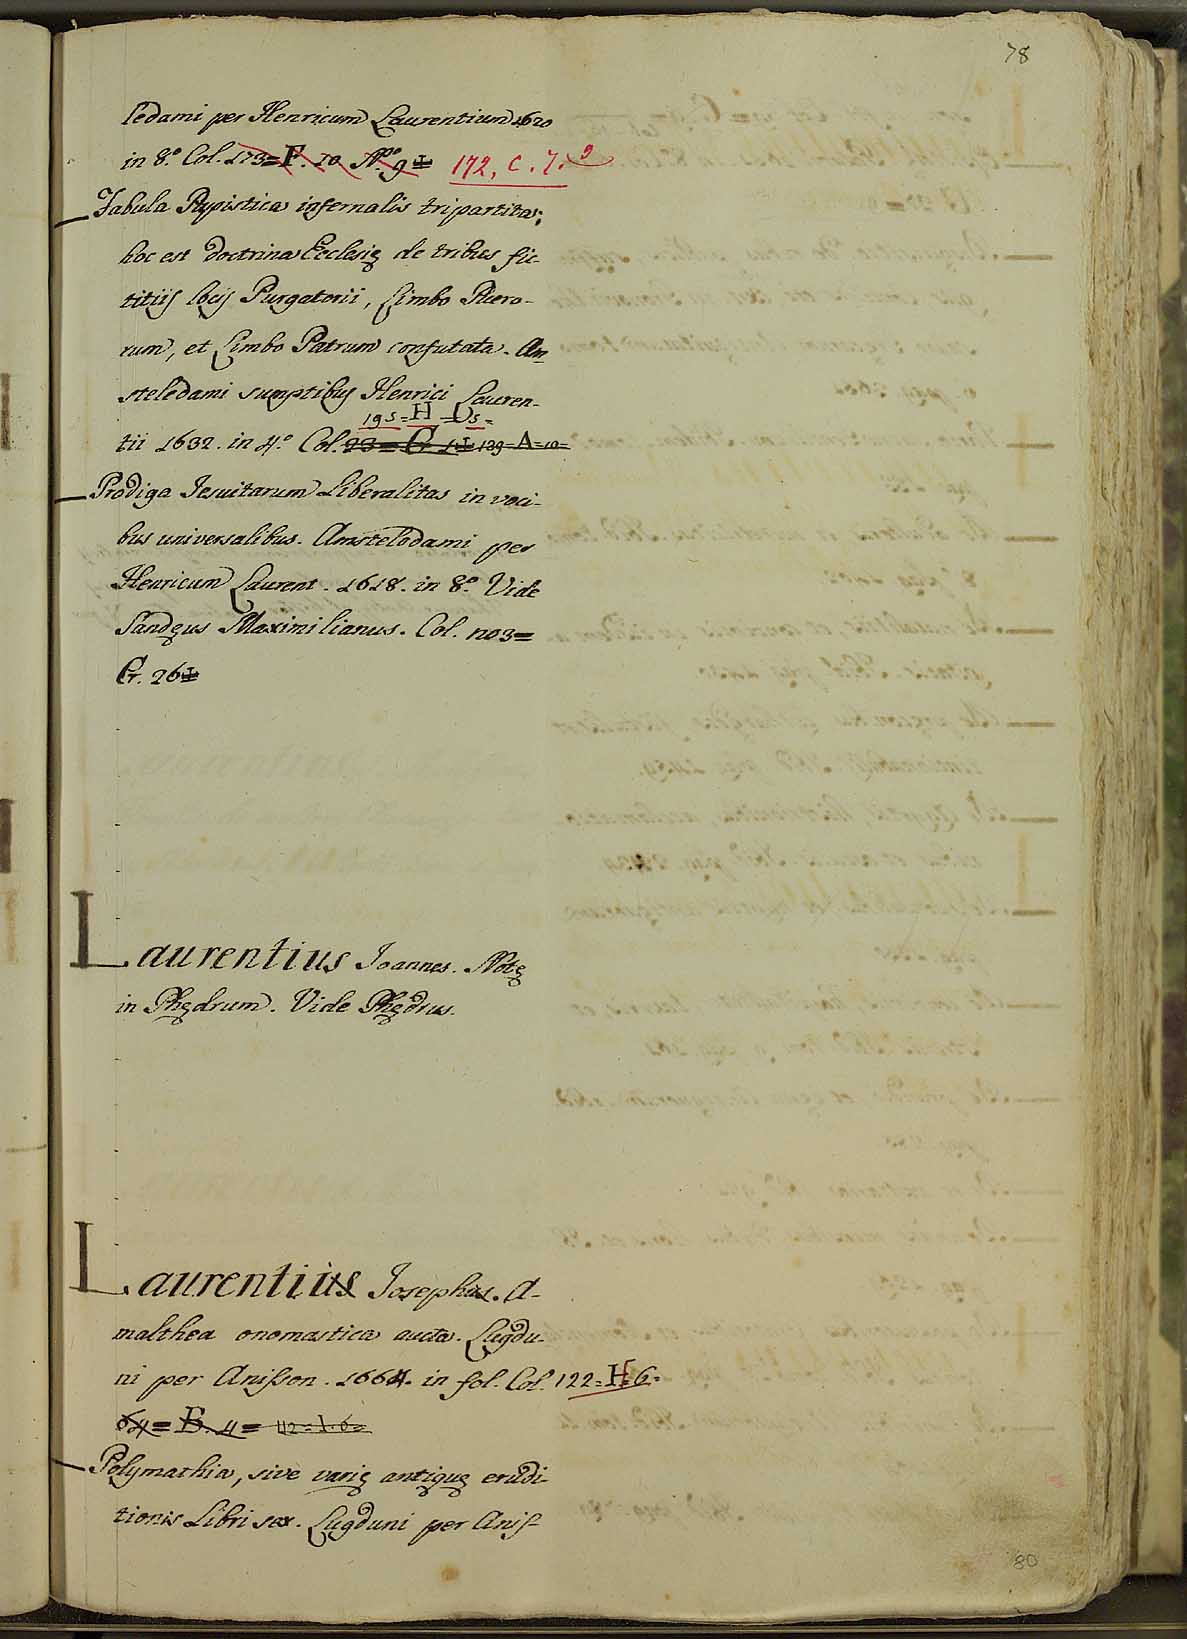 78
ledami per Henricum Laurentium 1620
in 8.º Col. 173=F. 10 Nº. 9= 172, C. 7. 9
Tabula Papistica infernalis tripartita;
hoc est doctrina Ecclesię de tribus fic-
titiis locis Purgatorii, Limbo Puero-
rum, et Limbo Patrum confutata. Am
steledami sumptibus Henrici Lauren-
195=H=D5=
tii 1632. in 4.º Col. 23=C 139=A=10=
Prodiga Iesuitarum Liberalitas in voci-
bus universalibus. Amstelodami per
Henricum Laurent. 1618. in 8.º Vide
Sandęus Maximilianus. Col. 1103=
G. 26
Laurentius Ioannes. Notę
in Phędrum. Vide Phędrus.
Laurentius Iosephus. A-
malthea onomastica aucta. Lugdu-
ni per Anisson. 1664. in fol. Col. 122=H=6=
64=B. 4= 42=I.6=
Polymathia, sive varię antiquę erudi-
tionis Libri sex. Lugduni per Anis-
80